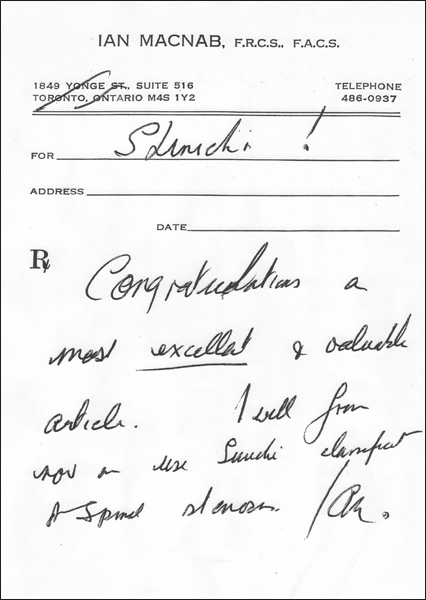 IAN MACNAB, F.R.C.S., F.A.C.S.
1849 YONGE ST., SUITE 516
TORONTO, ONTARIO M4S 1Y2
TELEPHONE
486-0937
FOR Shinichi !
ADDRESS
DATE
℞
Congratulations a
most excellent & valuable
article. I will from
now on use
spinal stenosis. Ian.